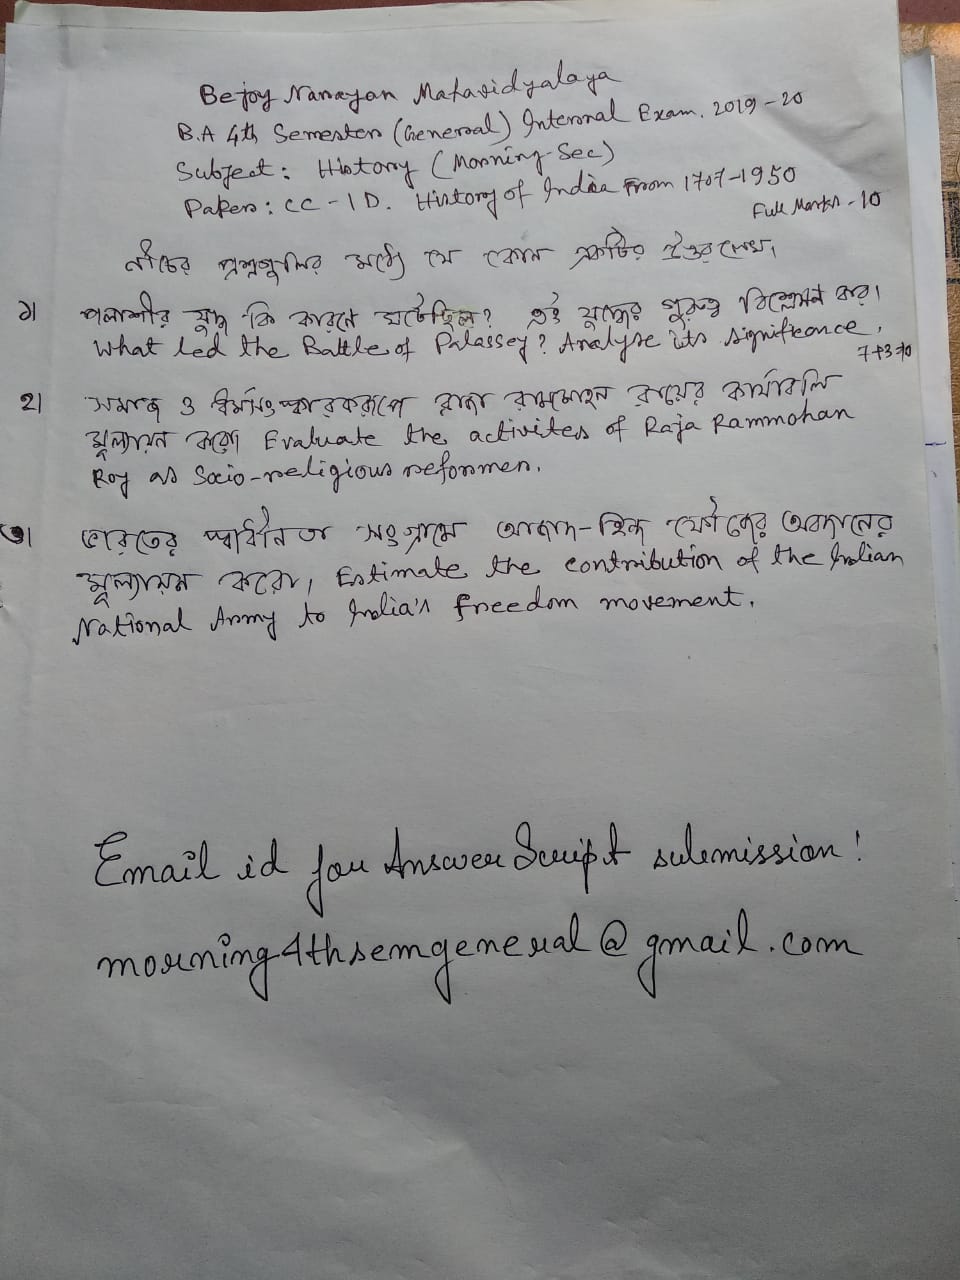 Bejoy Narayan Mahavidyalaya
B.A 4th Semester (General) Internal Exam. 2019-20
Subject: History (Morning-Sec)
Paper: CC-1D. History of India From 1707-1950
Full Marks-10
নীচের প্রশ্নগুলির মধ্যে যে কোন একটির উত্তর লেখ।
১। পলাশীর যুদ্ধ কি কারনে ঘটেছিল? এই যুদ্ধের গুরুত্ব বিশ্লেষন কর।
What led the Battle of Palassey? Analyse its significance.
7+3=10
২। সমাজ ও ধর্মসংস্কারকরূপে রাজা রামমোহন রায়ের কার্যাবলি
মূল্যায়ন করো Evaluate the activites of Raja Rammohan
Roy as Socio-religious reformer.
৩। ভারতের স্বাধীনতা সংগ্রামে আজাদ-হিন্দ ফৌজের অবদানের
মূল্যায়ন করো, Estimate the contribution of the Indian
National Army to India's freedom movement.
Email id for Answer Script submission:
morning4thsemgeneral@gmail.com